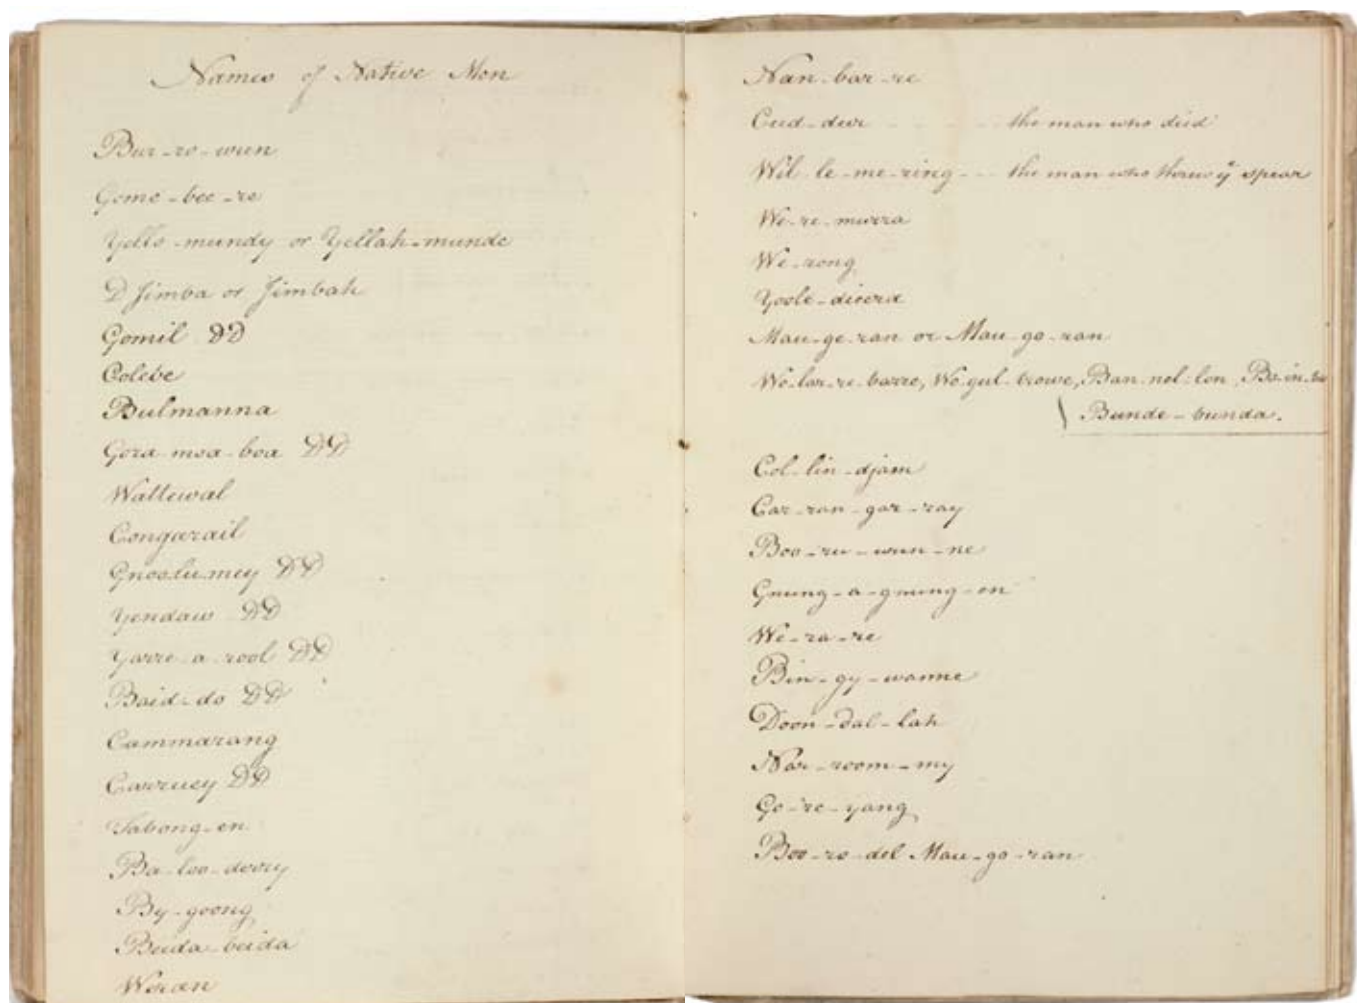 Names of Native Men
Bur-ro-wun
Gome-bee-re
Yello-mundy or Yellah-munde
D Jimba or Jimbah
Gomil DD
Colebe
Bulmanna
Gora-moa-boa DD
Wattewal
Congarail
Gnoolumey DD
Yendaw DD
Yarre-a-rool DD
Baid-do DD
Cammarang
Carruey DD
Tabong-en
Ba-loo-derry
By-goong
Beida-beida
Worgan
Nan-bar-re
Cud-dur - - - - the man who died
Wil-le-me-ring - - the man who threw ye spear
We-re-murra
We-rong
Yoole-dicera
Mau-ge-ran or Mau-go-ran
Wo-lar-re-barre, Wo-gul-trowe, Ban-nel-lon,
Bunde-bunda.
Col-lin-djam
Car-ran-gar-ray
Boo-ru-wun-ne
Gnung-a-gnung-en
We-ra-re
Bin-gy-wanne
Doon-dal-lah
Nar-room-my
Go-re-yang
Boo-ro-del Mau-go-ran